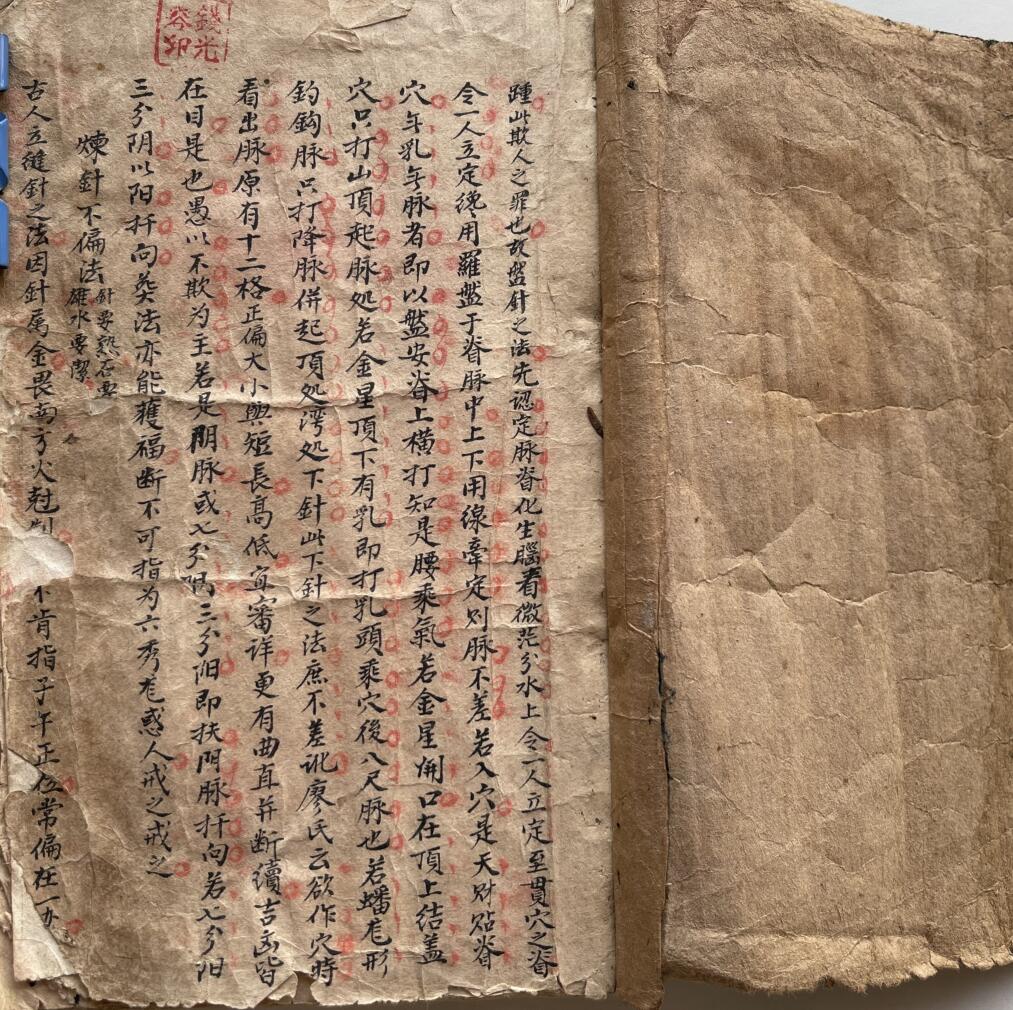 踵此欺人之罪也故盤針之法先認定脉脊化生腦看微茫分水上令一人立定至貫穴之脊
令一人立定纔用羅盤于脊脉中上下用線牽定則脉不差若入穴是天財貼脊
穴無乳無脉者即以盤安脊上橫打知是腰乘氣若金星開口在頂上結蓋
穴只打山頂起脉处若金星頂下有乳即打乳頭乘穴後八尺脉也若蟠龙形
釣鈎脉只打降脉併起頂処湾処下針此下針之法庶不差訛廖氏云欲作穴時
看出脉原有十二格正偏大小與短長高低宜審详更有曲直并断續吉凶皆
在目是也愚以不欺为主若是阴脉或七分阴三分阳即扶阴脉扦向若七分阳
三分阴以阳扦向葬法亦能獲福断不可指为六秀龙惑人戒之戒之
煉針不偏法針要熟石要雄水要潔
古人立縫針之法因針属金畏南方火尅
不肯指子午正位常偏在一
錢光容印